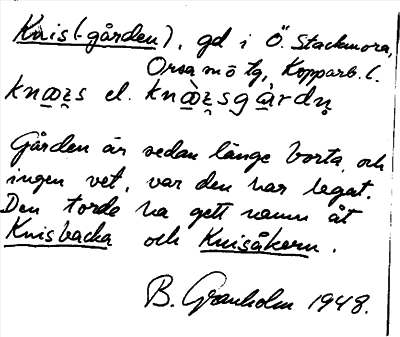 Knis(-gården), gd i Ö. Stackmora,
Orsa sn o tg, Kopparb. l.
el.
Gården är sedan länge borta, och
ingen vet, var den har legat.
Den torde ha gett namn åt
Knisbacka och Knisåkern.
B. Granholm 1948.